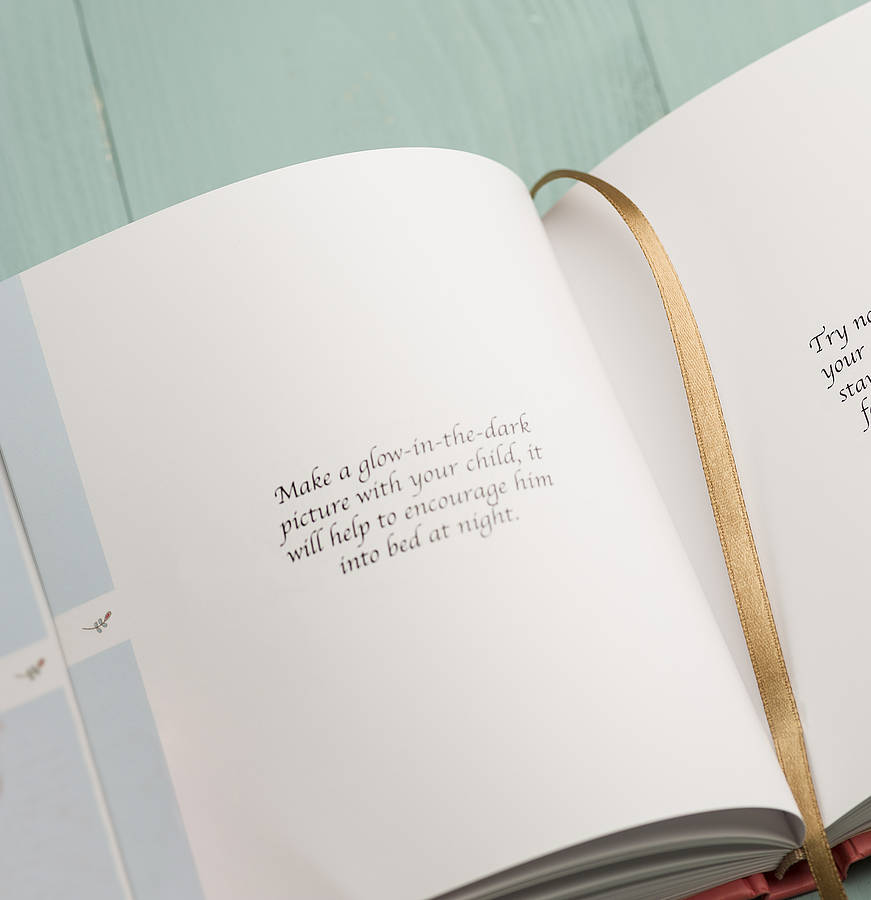 Make a glow-in-the-dark
picture with your child, it
will help to encourage him
into bed at night.
Try
your